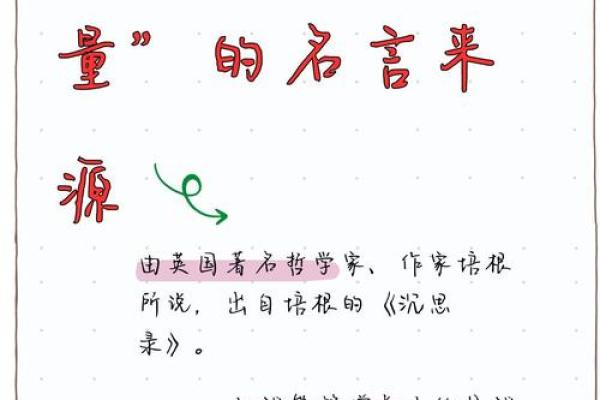 量”的名言来
源
由英国著名哲学家、作家培根
所说，出自培根的《沉思
录》。